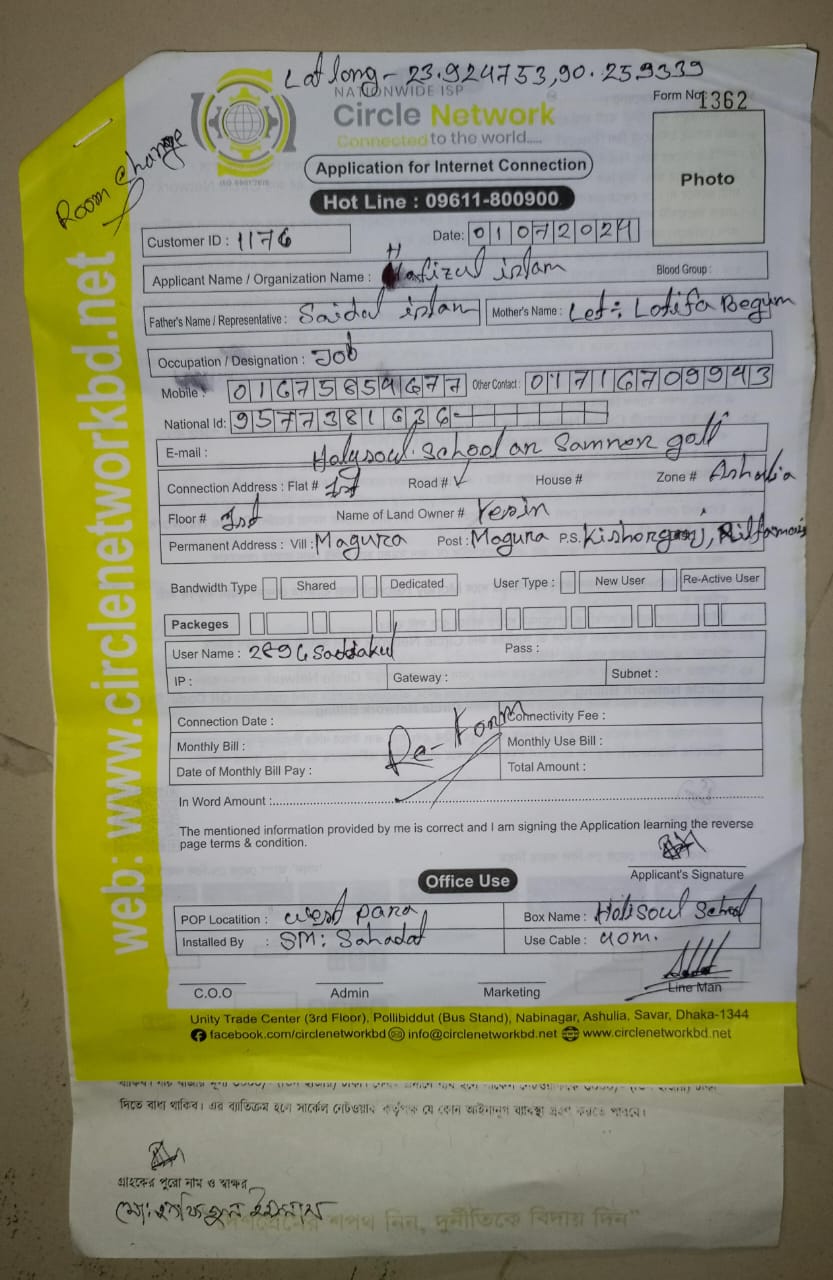 Lat long - 23.924753,90.259339
NATIONWIDE ISP
Form No: 1362
Circle Network
Connected to the world.....
ISO 9001:2015
Room change
Application for Internet Connection
Photo
Hot Line : 09611-800900
Customer ID : 1176
Date: 01072024
Applicant Name / Organization Name : Hafizul islam
Blood Group :
Father's Name / Representative : Saidul islam
Mother's Name : Let: Lotifa Begum
Occupation / Designation : Job
Mobile : 01675654677
Other Contact : 01716709943
National Id: 9577381636
E-mail :
Holysoul School ar Samner goli
Connection Address : Flat # 1st Road # House # Zone # Ashulia
Floor # 1st Name of Land Owner # Yesin
Permanent Address : Vill : Magura Post : Magura P.S. Kishorganj, Nilfamari
Bandwidth Type Shared Dedicated User Type : New User Re-Active User
Packeges
User Name : 2896 Saddakul Pass :
IP : Gateway : Subnet :
Connection Date : Connectivity Fee :
Monthly Bill : Monthly Use Bill :
Re-Form
Date of Monthly Bill Pay : Total Amount :
In Word Amount :
The mentioned information provided by me is correct and I am signing the Application learning the reverse
page terms & condition.
Applicant's Signature
Office Use
POP Locatition : west para Box Name : Holisoul School
Installed By : SM: Sahadat Use Cable : 40m.
C.O.O Admin Marketing Line Man
Unity Trade Center (3rd Floor), Pollibiddut (Bus Stand), Nabinagar, Ashulia, Savar, Dhaka-1344
facebook.com/circlenetworkbd info@circlenetworkbd.net www.circlenetworkbd.net
web: www.circlenetworkbd.net
দিতে বাধ্য থাকিব। এর ব্যতিক্রম হলে সার্কেল নেটওয়ার্ক কর্তৃপক্ষ যে কোন আইনানুগ ব্যবস্থা গ্রহণ করতে পারবে।
গ্রাহকের পুরো নাম ও স্বাক্ষর
মো: হাফিজুল ইসলাম
শপথ নিন, দুর্নীতিকে বিদায় দিন"